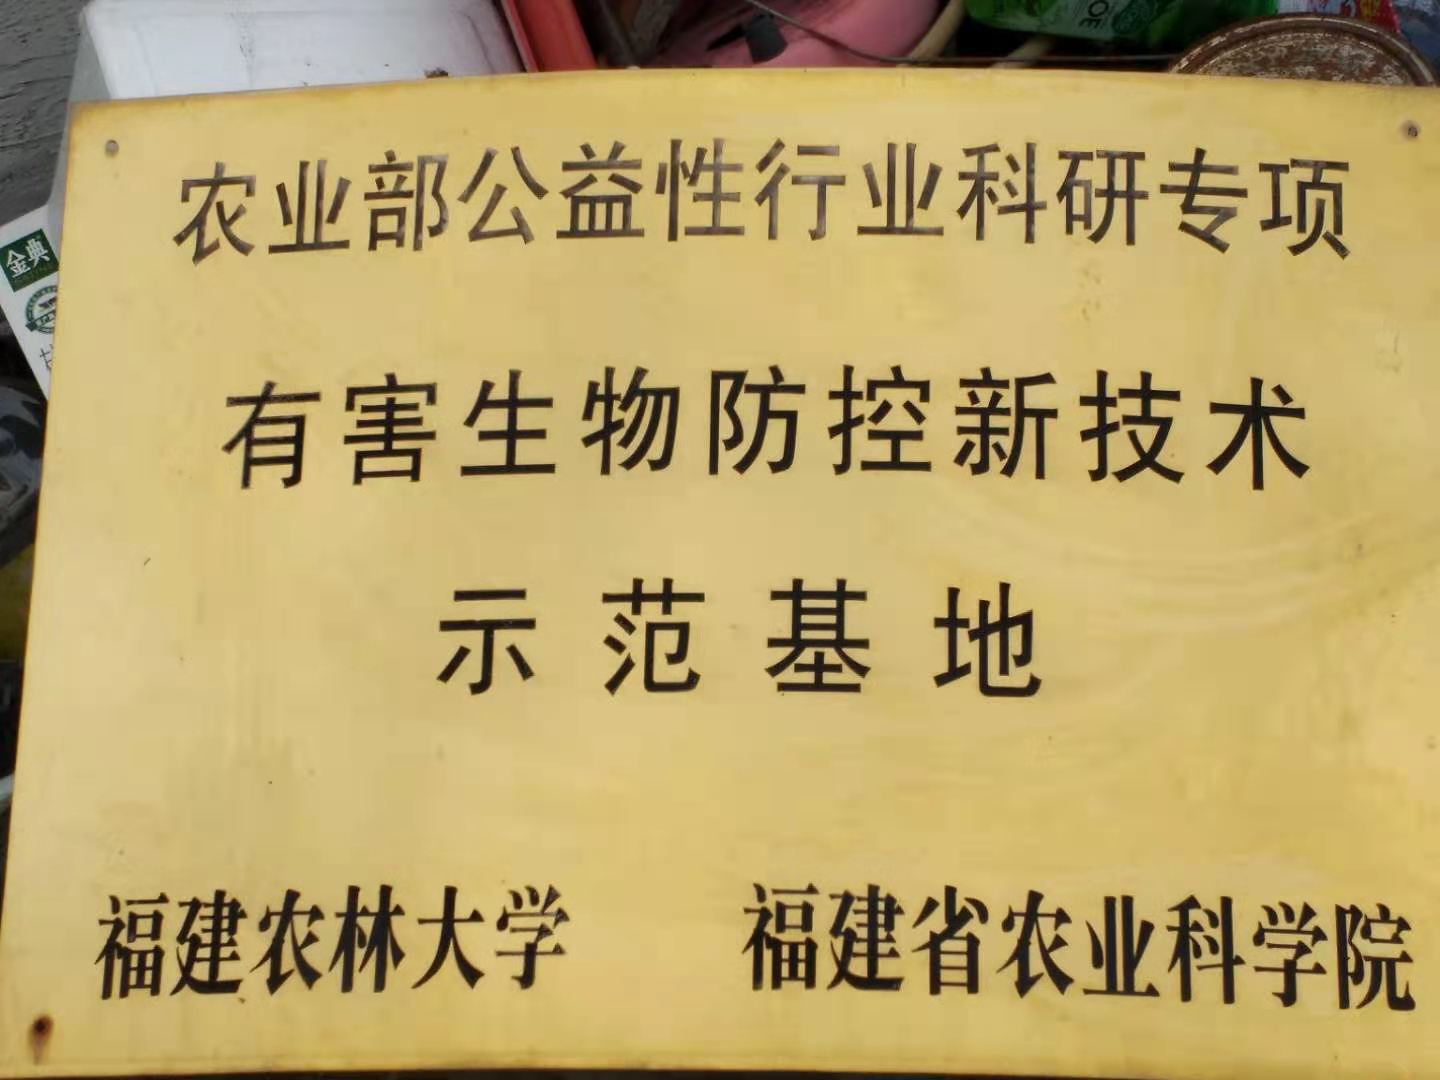 农业部公益性行业科研专项
有害生物防控新技术
示范基地
福建农林大学 福建省农业科学院
金典